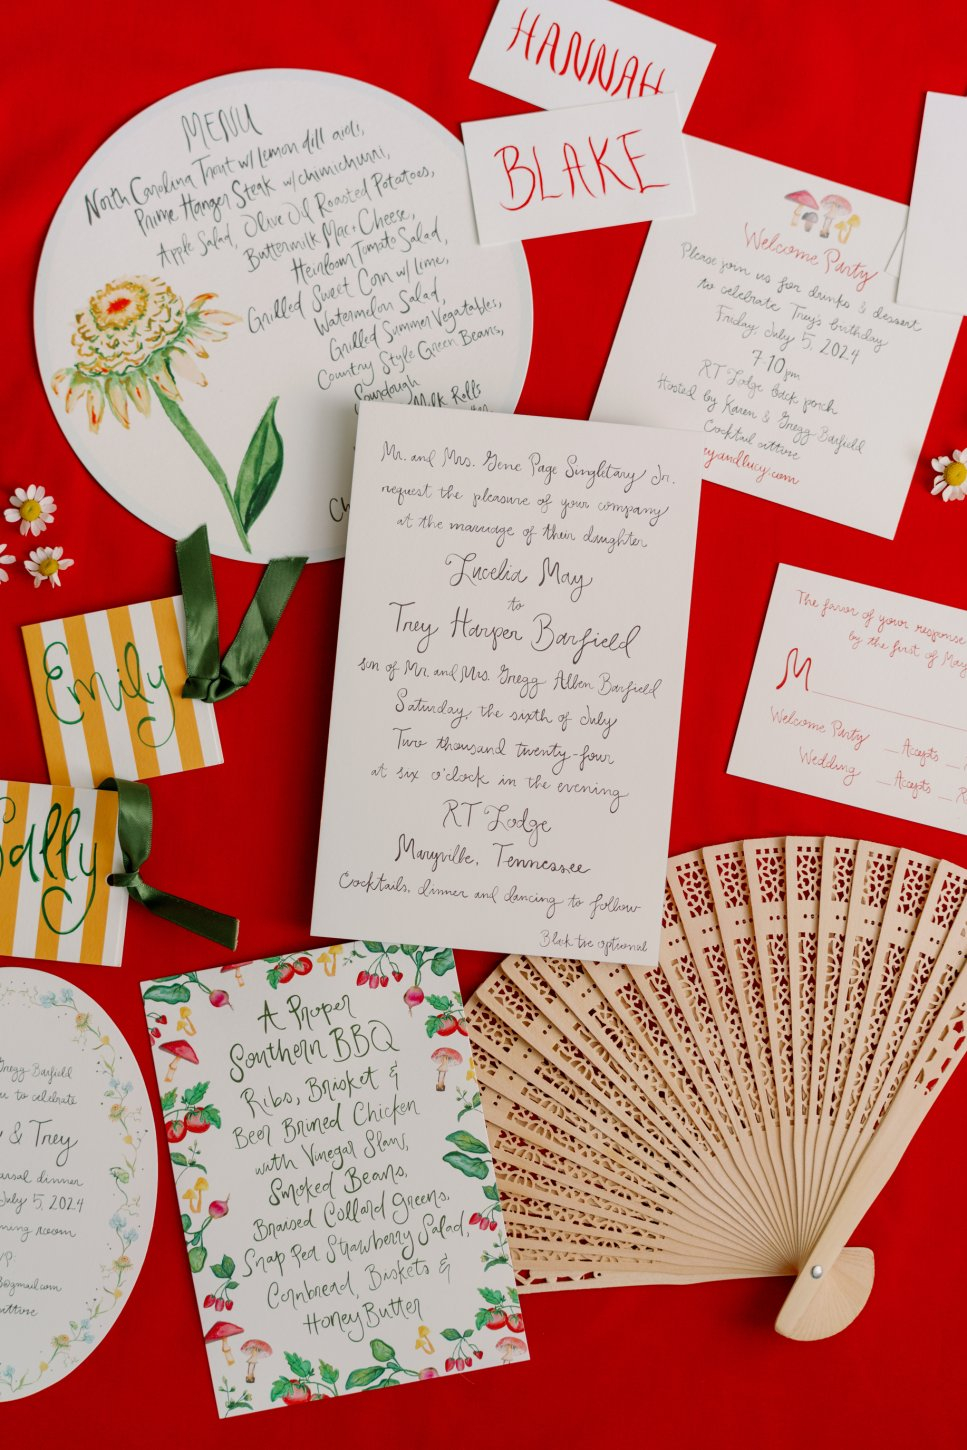 HANNAH
BLAKE
MENU
North Carolina Trout w/ lemon dill aioli,
Prime Hanger Steak w/ chimichurri,
Apple Salad, Olive Oil Roasted Potatoes,
Buttermilk Mac + Cheese,
Heirloom Tomato Salad,
Grilled Sweet Corn w/ lime,
Watermelon Salad,
Grilled Summer Vegetables,
Country Style Green Beans,
Sourdough
Milk Rolls
Ch
Welcome Party
Please join us for drinks & dessert
to celebrate Trey's birthday
Friday, July 5, 2024
7-10 pm
RT Lodge back porch
Hosted by Karen & Gregg Barfield
Cocktail attire
eyandlucy.com
Mr. and Mrs. Gene Page Singletary Jr.
request the pleasure of your company
at the marriage of their daughter
Lucelia May
to
Trey Harper Barfield
son of Mr. and Mrs. Gregg Allen Barfield
Saturday, the sixth of July
Two thousand twenty-four
at six o'clock in the evening
RT Lodge
Maryville, Tennessee
Cocktails, dinner and dancing to follow
Black tie optional
The favor of your response
by the first of May
M
Welcome Party _ Accepts
Wedding _ Accepts _ R
Emily
Sally
Gregg Barfield
to celebrate
& Trey
dinner
July 5, 2024
room
@gmail.com
attire
A Proper
Southern BBQ
Ribs, Brisket &
Beer Brined Chicken
with Vinegar Slaw,
Smoked Beans,
Braised Collard Greens,
Snap Pea Strawberry Salad,
Cornbread, Biskets &
Honey Butter